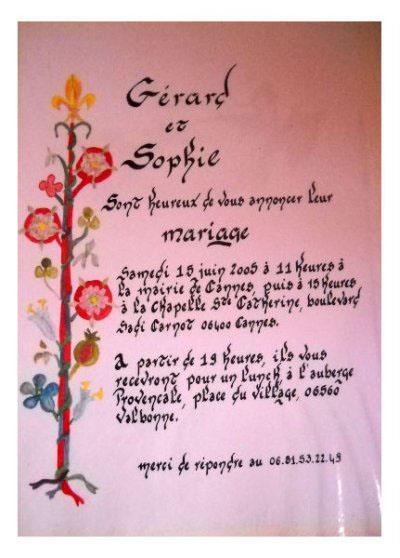 Gérard
et
Sophie
Sont heureux de vous annoncer leur
mariage
Samedi 15 juin 2005 à 11 heures à
la mairie de Cannes, puis à 15 heures
à la Chapelle Ste Catherine, boulevard
Sadi Carnot 06400 Cannes.
A partir de 19 heures, ils vous
recevront pour un lunch à l'auberge
Provencale, place du village, 06560
Valbonne.
merci de répondre au 06.81.53.22.49